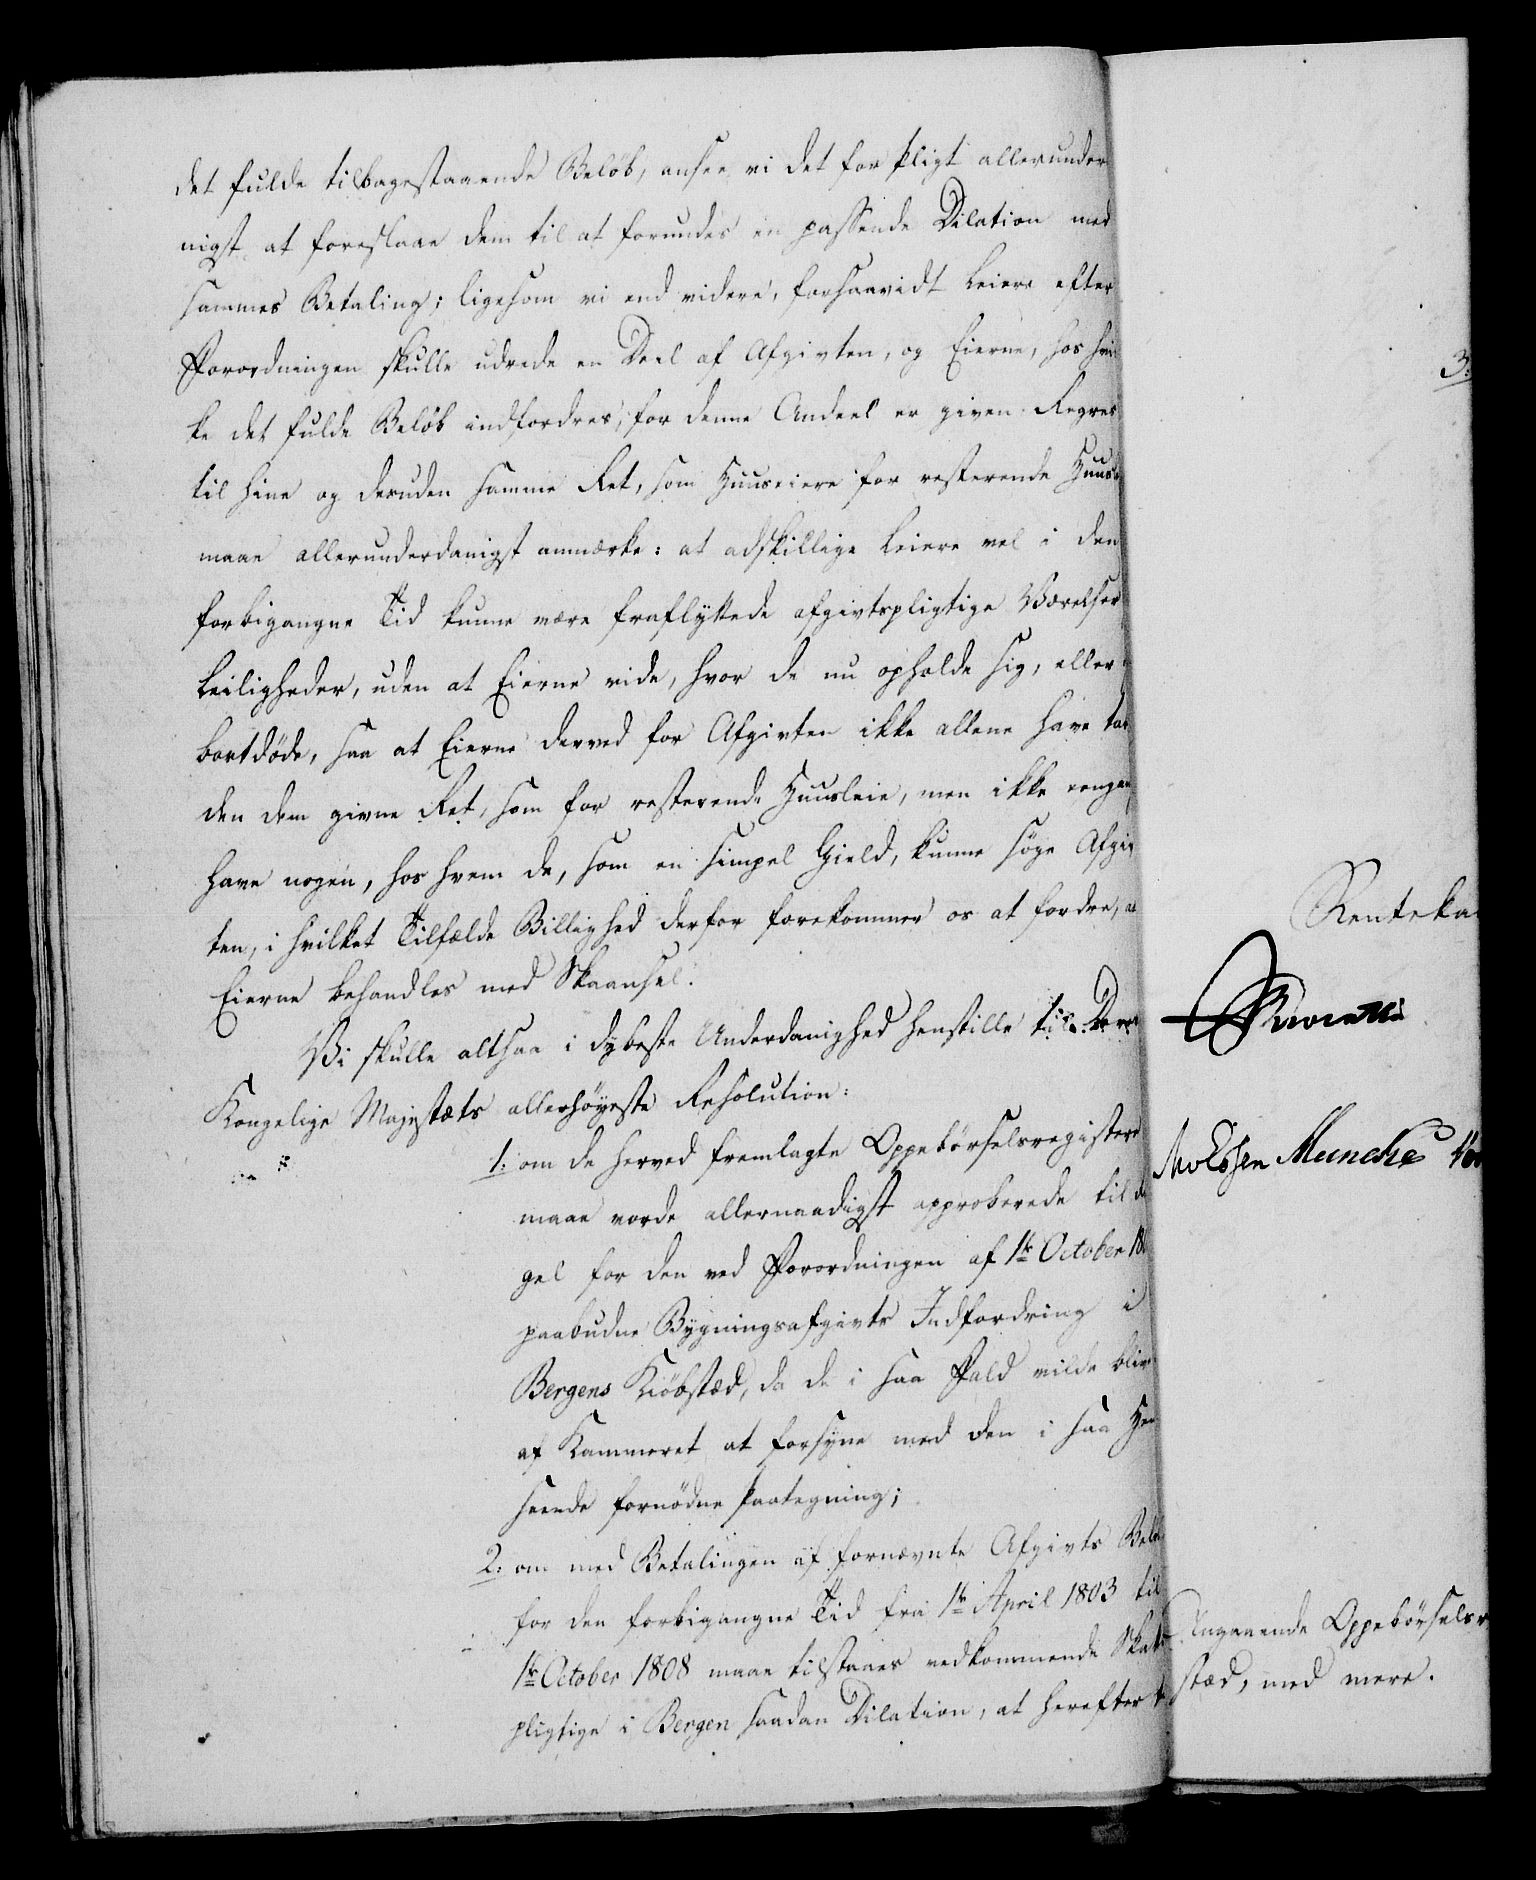 det fulde tilbagestaaende Beløb, ansee vi det for Pligt allerunder
nigst at foreslaae dem til at forundes en passende Dilation med
sammes Betaling; ligesom vi end videre, forsaavidt Leiere efter
Forordningen skulle udrede en Deel af Afgivten, og Eierne, hos hvil
ke det fulde Beløb indfordres, for denne Andeel er given Regres
til hine og desuden samme Ret, som Huuseiere for resterende Huusl
maae allerunderdanigst anmærke: at adskillige Leiere vel i den
forbigangne Tid kunne være fraflyttede afgivtspligtige Værelser
Leiligheder, uden at Eierne vide, hvor de nu opholde sig, eller
bortdøde, saa at Eierne derved for Afgivten ikke allene have tab
den dem givne Ret, som for resterende Huusleie, men ikke engan
have nogen, hos hvem de, som en simpel Gield, kunne søge Afgiv
ten, i hvilket Tilfælde Billighed derfor forekommer os at fordre, a
Eierne behandles med Skaansel.
Vi skulle altsaa i dybeste Underdanighed henstille til Deres
Kongelige Majestæts allerhøyeste Resolution:
1: om de herved fremlagte Oppebørselsregistere
maae vorde allernaadigst approberede til
gel for den ved Forordningen af 1te October 18
paabudne Bygningsafgivts Indfordring i
Bergens Kiøbstæd, da de i saa Fald vilde blive
af Kammeret at forsyne med den i saa Hen
seende fornødne Paategning;
2: om med Betalingen af fornævnte Afgivts Beløb
for den forbigangne Tid fra 1te April 1803 til
1te October 1808 maae tilstaaes vedkommende Skat
pligtige i Bergen saadan Dilation, at herefter
3:
Renteka
Munche
Angaaende Oppebørselsr
stæd, med mere.